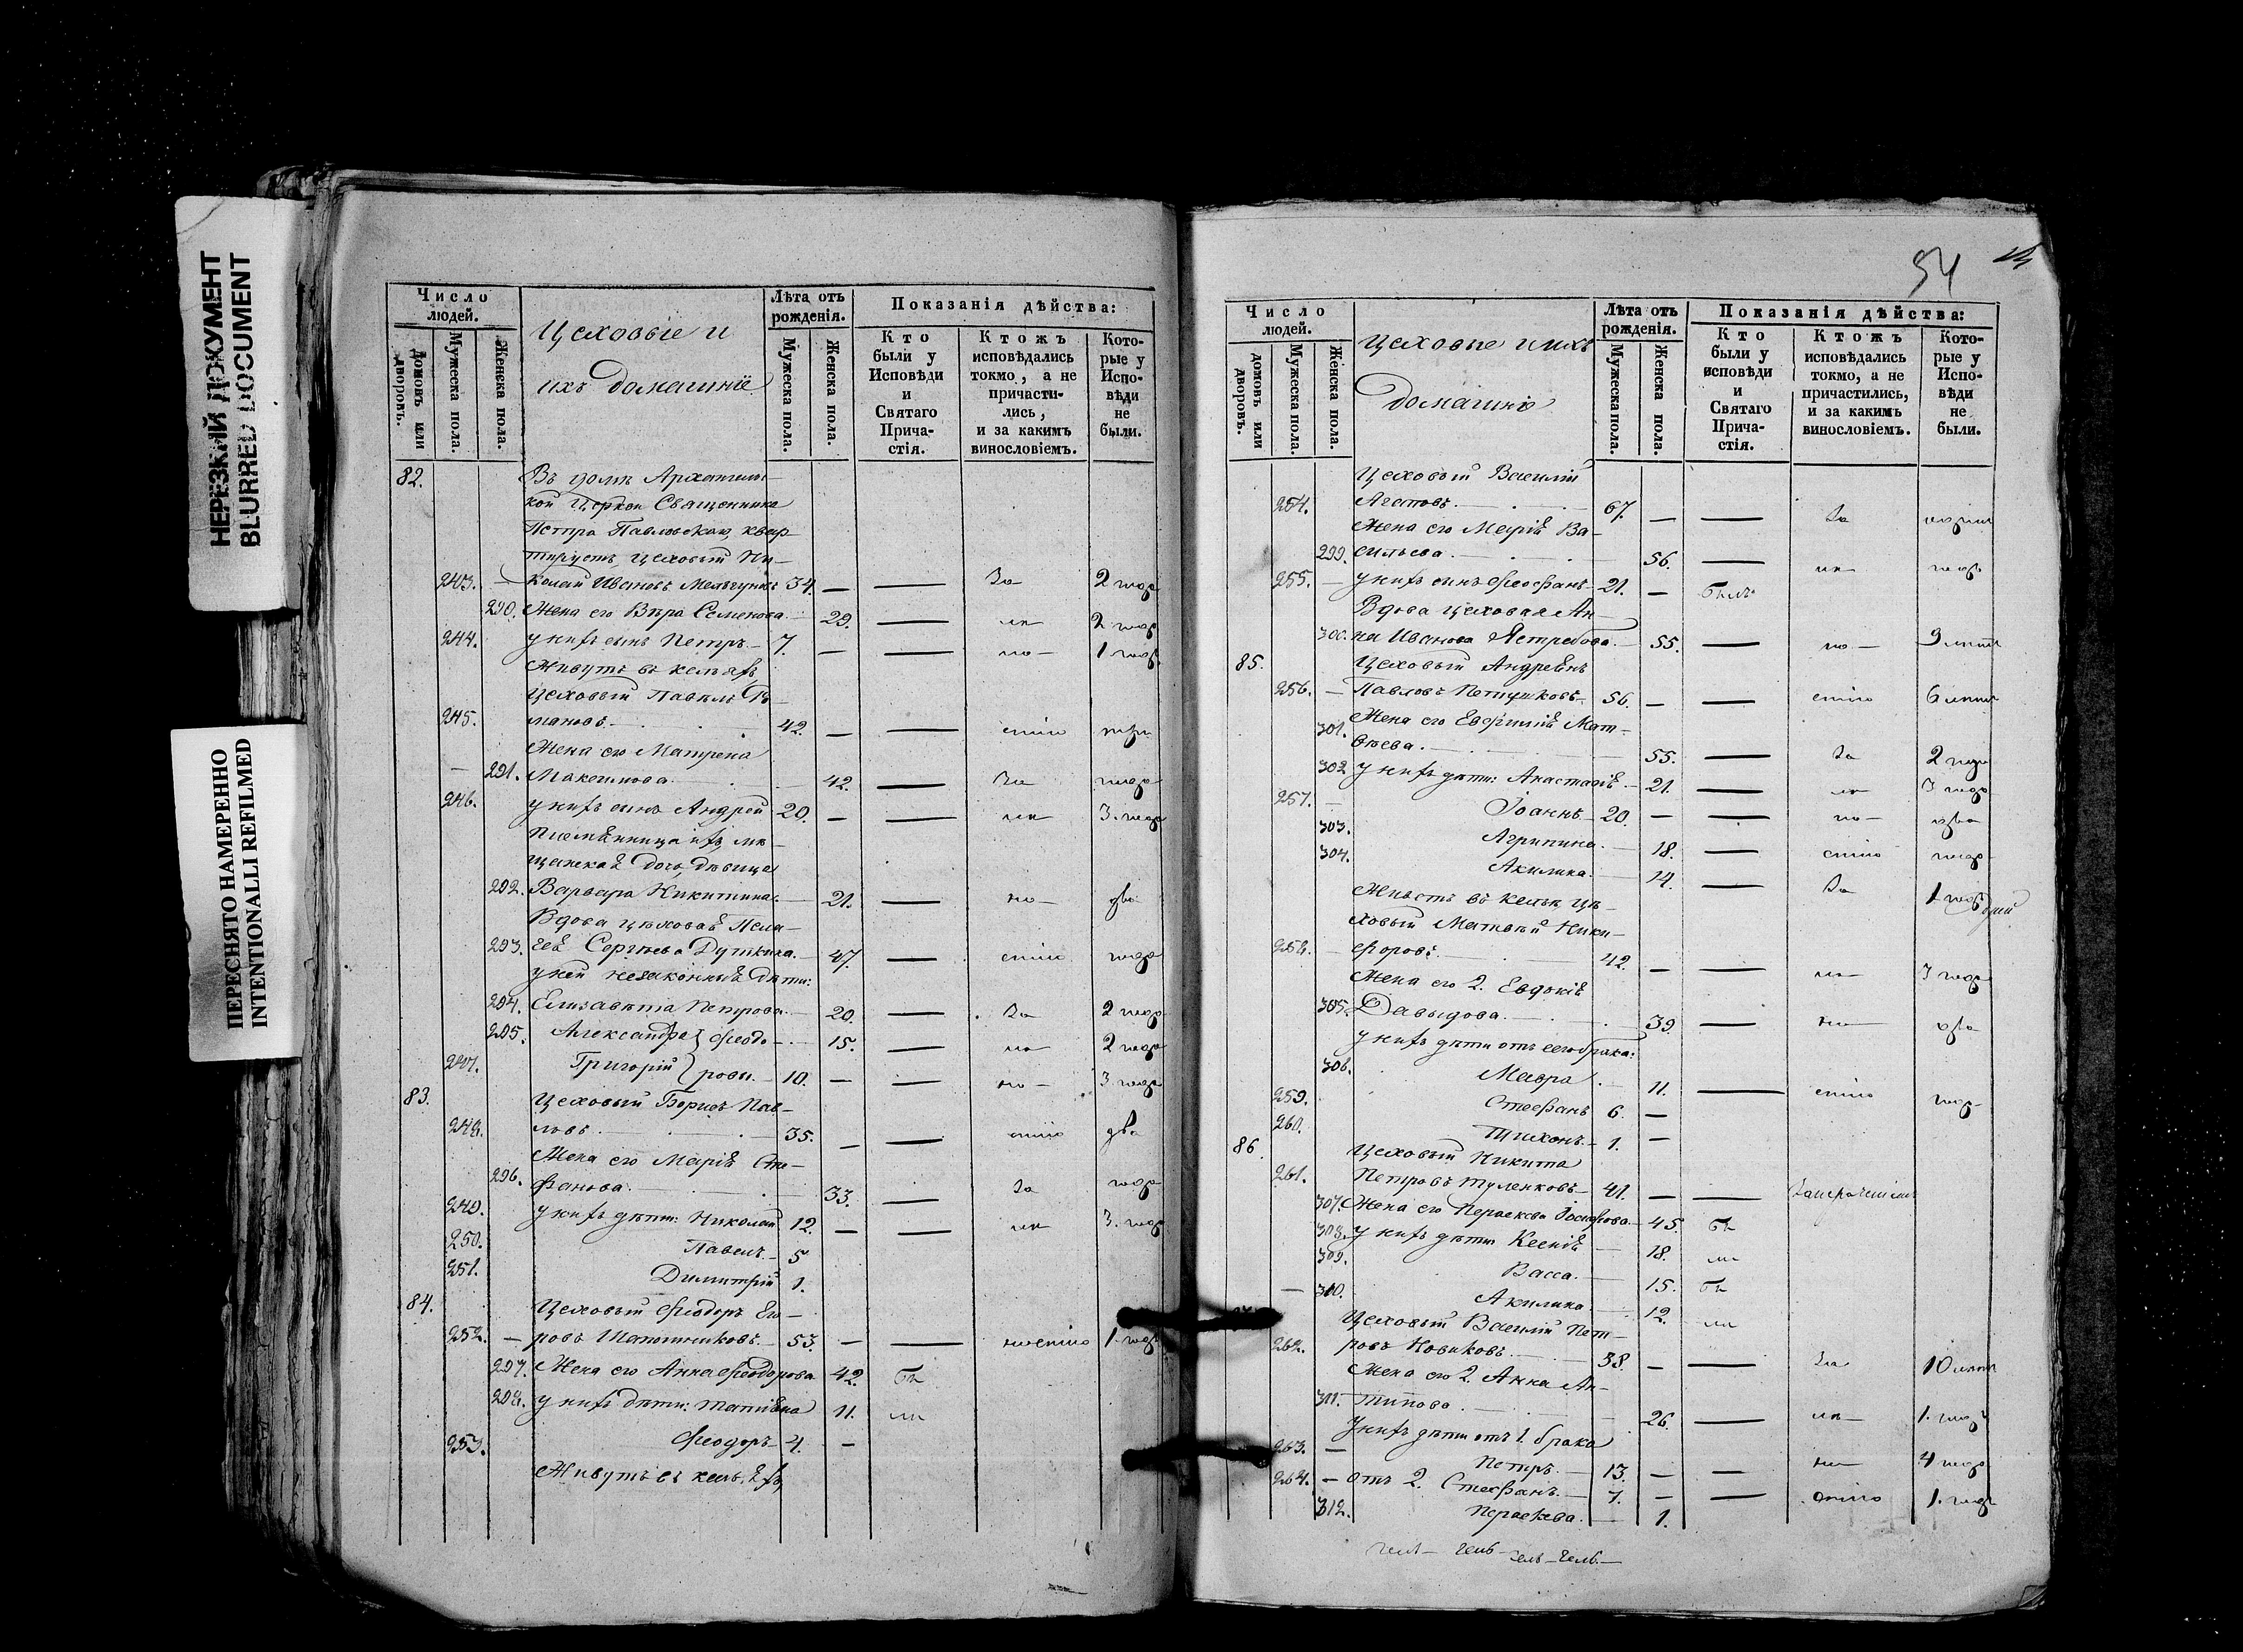 НЕРЕЗКИЙ ДОКУМЕНТ
BLURRED DOCUMENT
ПЕРЕСНЯТО НАМЕРЕННО
INTENTIONALLI REFILMED
Число людей.
домовъ или дворовъ.
Мужеска пола.
Женска пола.
Цеховые и
ихъ домашніе
Лѣта отъ рожденія.
Мужеска пола.
Женска пола.
Показанія дѣйства:
Кто были у Исповѣди и Святаго Прича- стія.
Ктожъ исповѣдались токмо, а не причасти- лись, и за какимъ винословіемъ.
Кото- рые у Испо- вѣди не были.
82. Въ домѣ Архангель-
кой Церкви Священника
Петра Павловскаго, квар-
тируетъ, цеховый Ни-
243. — колай Ивановъ 34. — — За 2 года
290. Жена его Вѣра Семенова 29. — 2 года
244. у нихъ сынъ Петръ 7. — — но 1 годъ
Живутъ въ кельяхъ,
Цеховый Павелъ Ро-
245. мановъ 42. — — стію три
Жена его Матрена
— 291. Максимова 42. — За года
246. у нихъ сынъ Андрей 20. — — 3. года
Племянница ихъ, мѣ-
щанская дочь, дѣвица
292. Варвара Никитина 21. — но два
Вдова цѣховая Пела-
293. гея Сергѣева Дуткина 47. — стію года
у ней незаконныя дѣти:
294. Елизавета Петрова 20. — За 2 года
295. Александра } Ѳеодо- 15. — 2 года
247. Григорій } ровы 10. — — но 3 года
83. Цеховый Борисъ Пав-
248. ловъ 35. — — стію два
Жена его Марія Сте-
296. фанова 33. — За года
249. у нихъ дѣти: Николай 12. — — 3. года
250. Павелъ 5
251. Димитрій 1.
84. Цеховый Ѳеодоръ Его-
252. — ровъ Шапошниковъ 53. — — 1. годъ
297. Жена его Анна Ѳеодорова 42. бы
298. у нихъ дѣти: Татіана 11. ли
253. Ѳеодоръ 4. —
Живутъ въ кельяхъ,
54
Число людей.
домовъ или дворовъ.
Мужеска пола.
Женска пола.
Цеховые и ихъ
домашніе
Лѣта отъ рожденія.
Мужеска пола.
Женска пола.
Показанія дѣйства:
Кто были у исповѣди и Святаго Прича- стія.
Ктожъ исповѣдались токмо, а не причастились, и за какимъ винословіемъ.
Кото- рые у Испо- вѣди не были.
Цеховый Василій
254. Агаповъ 67. — — За
Жена его Марія Ва-
299. сильева 56. — года
255. — у нихъ сынъ Ѳеофанъ 21. — былъ
Вдова цеховая Ан-
300. на Иванова Ястребова 55. — но 9 лѣтъ
85. Цеховый Андреянъ
256. — Павловъ Петушковъ 56. — — стію 6 лѣтъ
Жена его Евфимія Мат-
301. вѣева 55. — За 2 года
302. у нихъ дѣти: Анастасія 21. — 3 года
257. — Іоаннъ 20. — — но два
303. Агрипина 18. — стію года
304. Акилина 14. — За 1 годъ
Живетъ въ кельи це-
ховый Матвѣй Ники-
258. — форовъ 42. — — 3 года
Жена его 2. Евдокія
305. Давыдова 39. — но два
у нихъ дѣти отъ сего брака:
306. Мавра 11. — стію года
259. Стефанъ 6. —
260. Тихонъ 1. —
86. Цеховый Никита
261. Петровъ Туленковъ 41. — —
307. Жена его Параскева 45. бы
308. у нихъ дѣти Ксенія 18. ли
309. Васса 15. бы
— 310. Акилина 12. ли
Цеховый Василій Пет-
262. ровъ Новиковъ 38. — — За 10 лѣтъ
Жена его 2. Анна Ан-
311. типова 26. — 1. годъ
У нихъ дѣти отъ 1. брака
263. — Петръ 13. — — но 4 года
264. — отъ 2. Стефанъ 7. — — стію 1. годъ
312. Параскева 1.